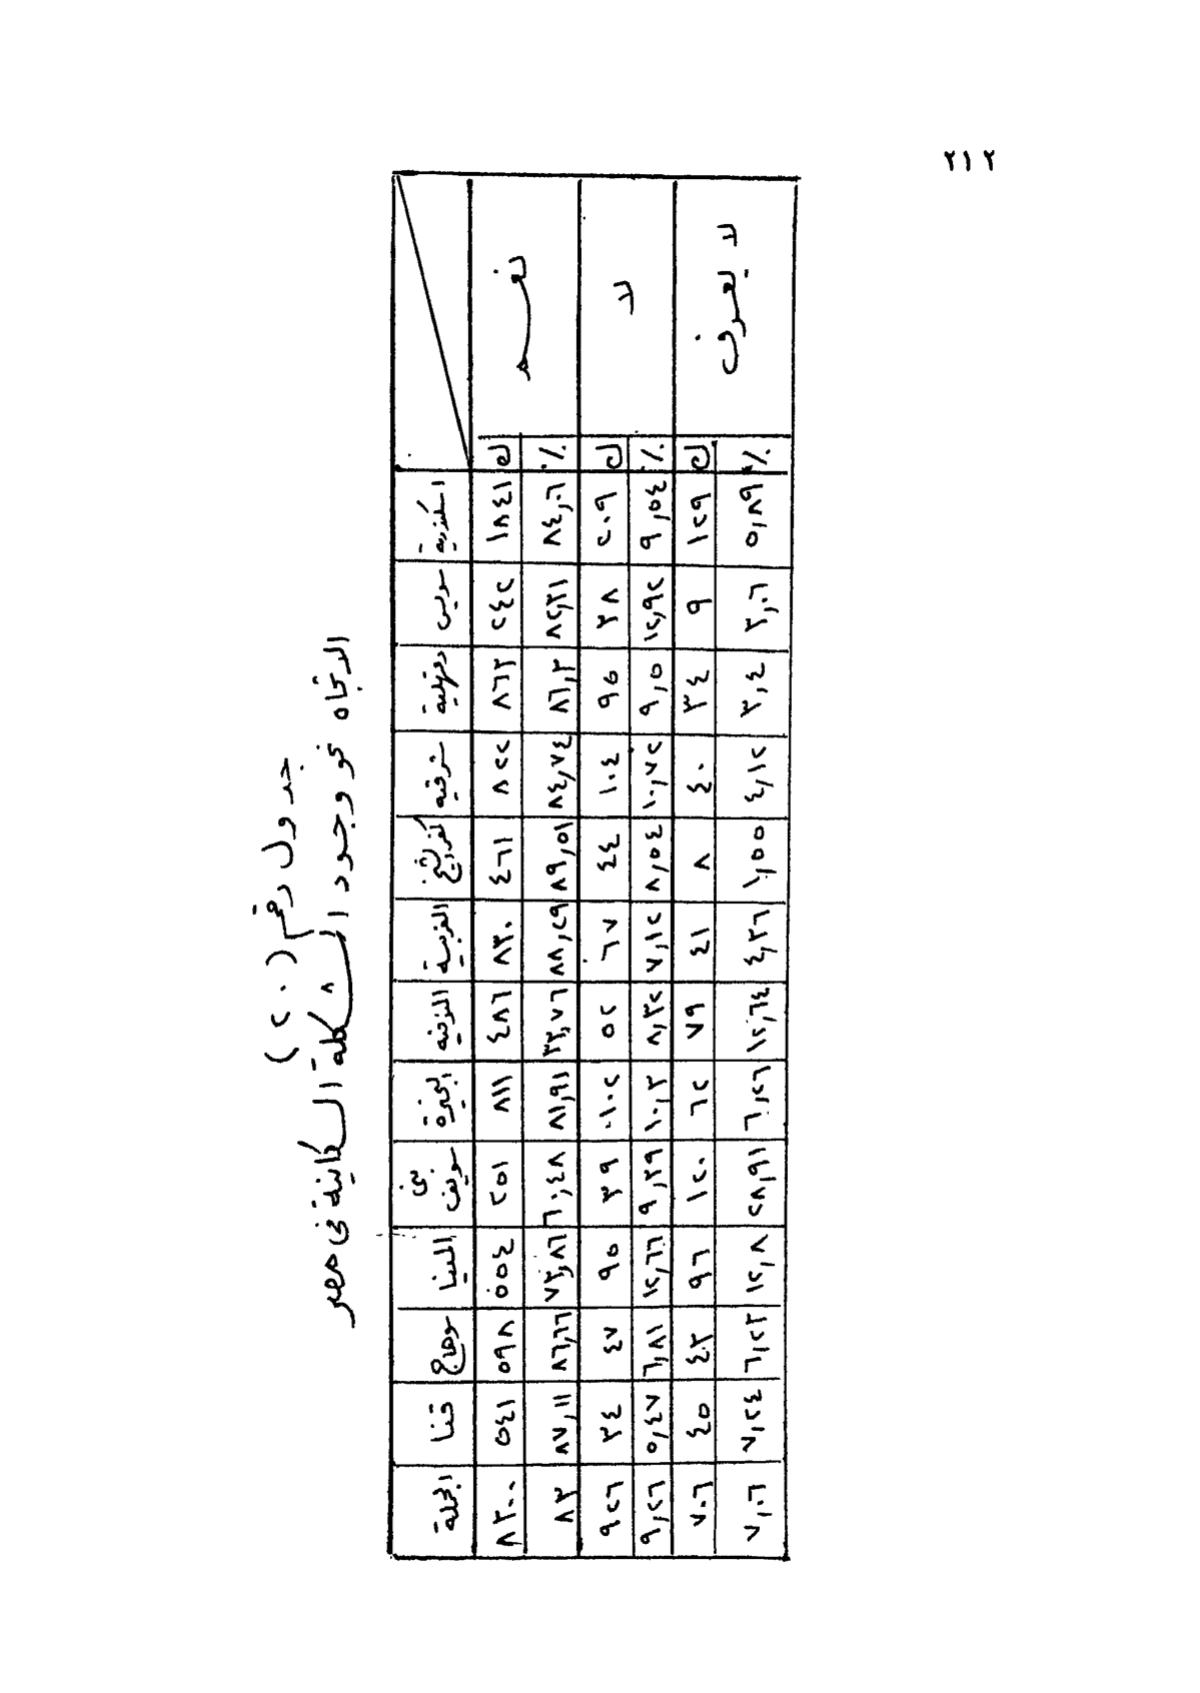 ٢١٢
جدول رقم (٢٠)
الاتجاه نحو وجود المشكلة السكانية فى مصر
اسكندرية سويس دقهلية شرقيه كفر الشيخ الغربية المنوفيه الجيزة بنى سويف المنيا سوهاج قنا الجملة
نعم ك ١٨٤١ ٢٤٢ ٨٦٣ ٨٢٢ ٤٦١ ٨٣٠ ٤٨٦ ٨١١ ٢٥١ ٥٥٤ ٥٩٨ ٥٤١ ٨٣٠٠
٪ ٨٤,٠٦ ٨٢,٣١ ٨٦,٣ ٨٤,٧٤ ٨٩,٥١ ٨٨,٢٩ ٣٣,٧٦ ٨١,٩١ ٦٠,٤٨ ٧٣,٨٦ ٨٦,٦٦ ٨٧,١١ ٨٣
لا ك ٢٠٩ ٣٨ ٩٥ ١٠٤ ٤٤ ٦٧ ٥٢ ١٠٢ ٣٩ ٩٥ ٤٧ ٣٤ ٩٢٦
٪ ٩,٥٤ ١٢,٩٢ ٩,٥ ١٠,٧٢ ٨,٥٤ ٧,١٢ ٨,٣٢ ١٠,٣ ٩,٣٩ ١٢,٦٦ ٦,٨١ ٥,٤٧ ٩,٢٦
لا يعرف ك ١٢٩ ٩ ٣٤ ٤٠ ٨ ٤١ ٧٩ ٦٢ ١٢٠ ٩٦ ٤٣ ٤٥ ٧٠٦
٪ ٥,٨٩ ٣,٠٦ ٣,٤ ٤,١٢ ١,٥٥ ٤,٣٦ ١٢,٦٤ ٦,٢٦ ٢٨,٩١ ١٢,٨ ٦,٢٣ ٧,٢٤ ٧,٠٦